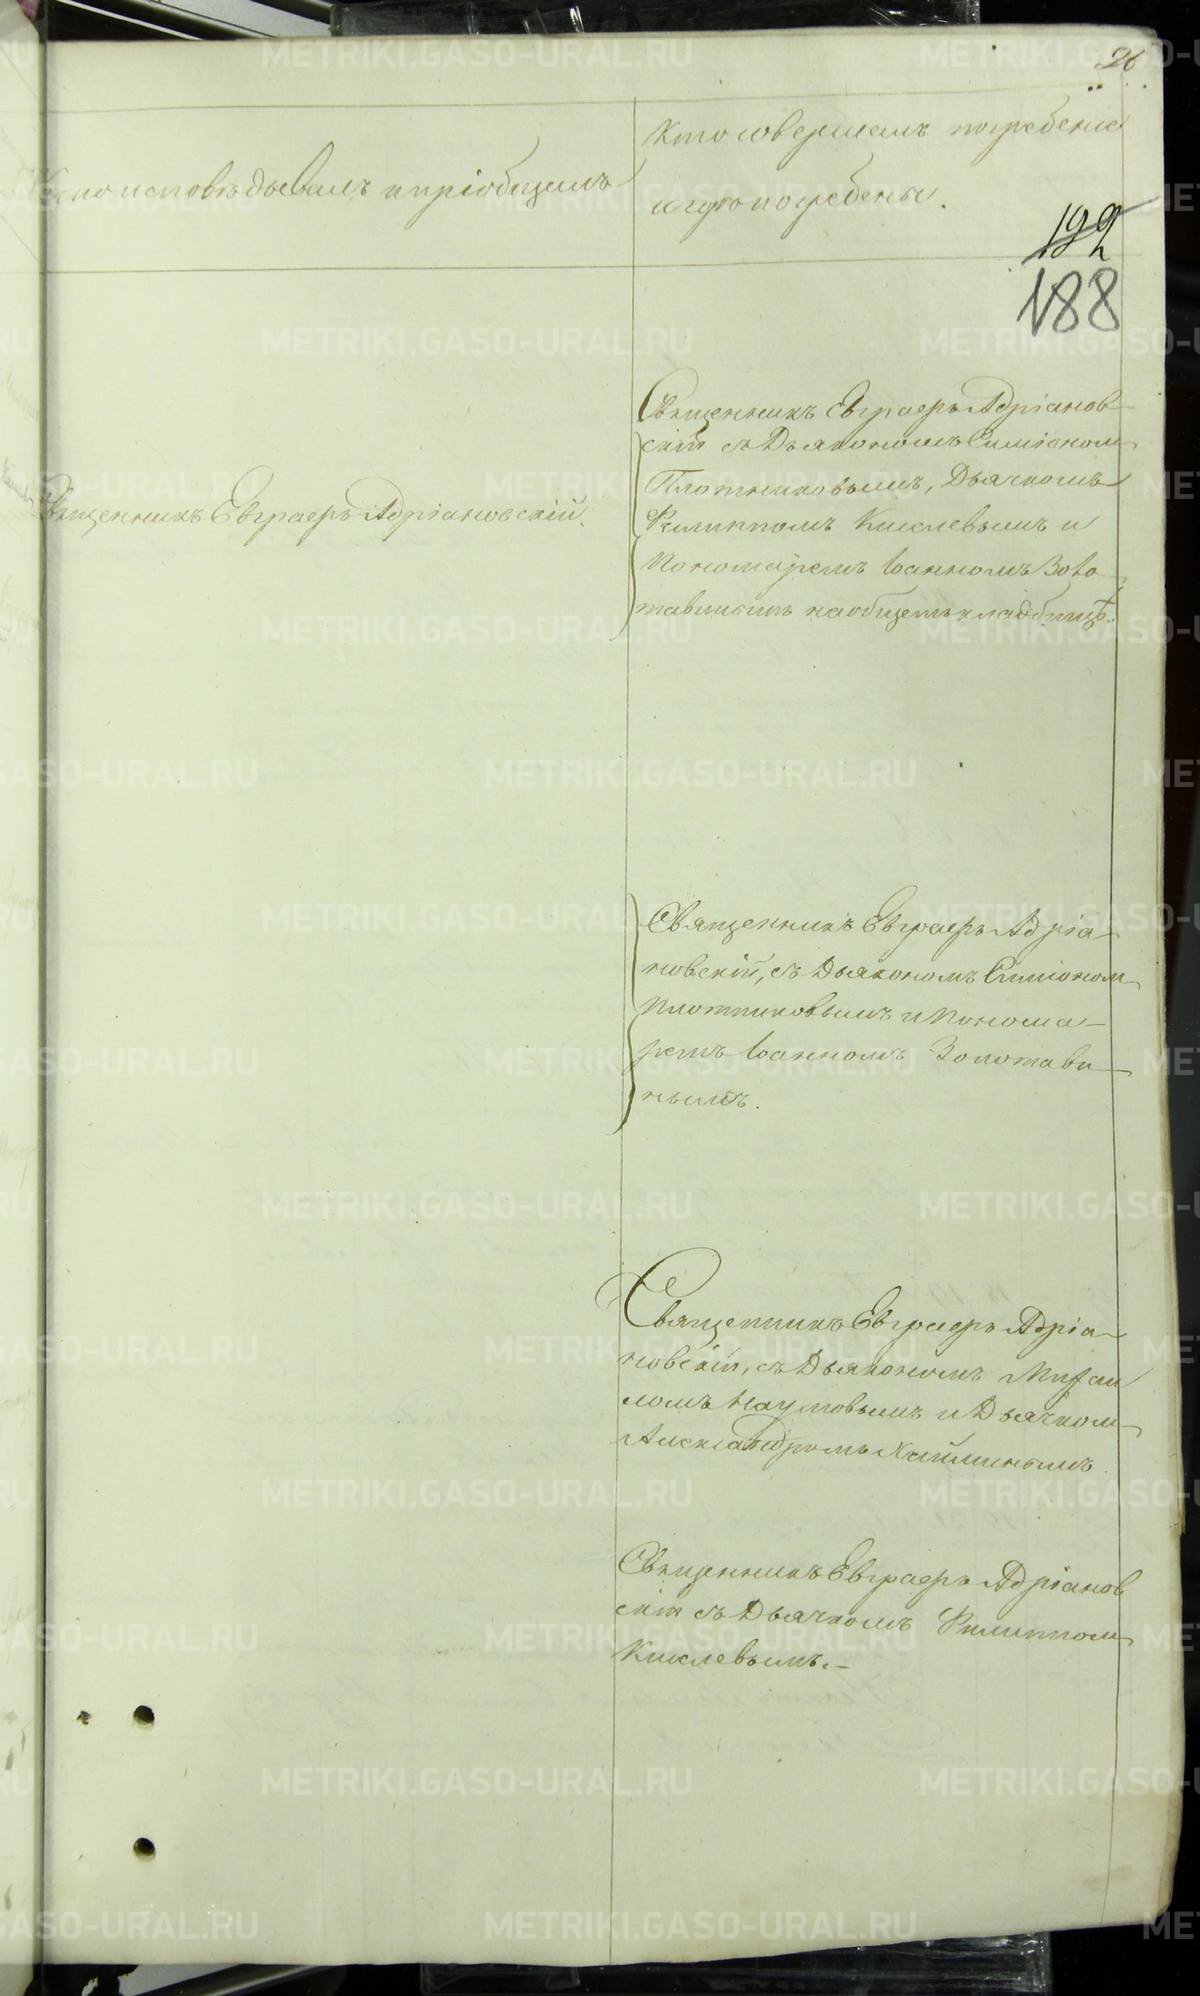 26
Кто исповѣдывалъ и пріобщилъ
Кто совершалъ погребеніе
и гдѣ погребены.
192
188
Священникъ Евграфъ Адріановскій.
Священникъ Евграфъ Адріанов
скій съ Дьякономъ Симіоном
Плотниковымъ, Дьячкомъ
Филиппомъ Киселевымъ и
Пономаремъ Іоанномъ Золо
тавинымъ на общемъ кладбищѣ.
Священникъ Евграфъ Адріа
новскій, съ Дьякономъ Симіоном
Плотниковымъ и Понома
ремъ Іоанномъ Золотави
нымъ.
Священникъ Евграфъ Адріа
новскій, съ Дьякономъ Михаи
ломъ Наумовымъ и Дьячком
Александромъ
Священникъ Евграфъ Адріанов
скій съ Дьячкомъ Филиппом
Киселевымъ.
METRIKI.GASO-URAL.RU